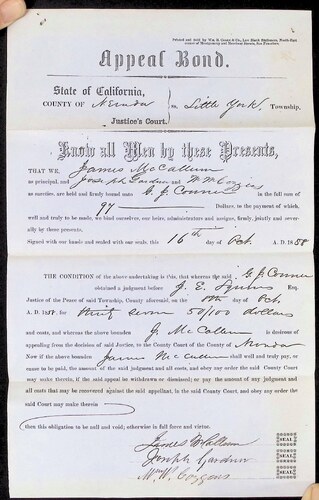 Printed and sold by Wm. B. Cooke & Co., Law Blank Stationers, North-East
corner of Montgomery and Merchant Streets, San Francisco.
Appeal Bond.
State of California,
COUNTY OF Nevada } in Little York Township,
Justice's Court.
Know all Men by these Presents,
THAT WE, James McCallum
as principal, and Joseph Gardner and W W Coggins
as sureties, are held and firmly bound unto G. J. Conner in the full sum of
99 — Dollars, to the payment of which,
well and truly to be made, we bind ourselves, our heirs, administrators and assigns, firmly, jointly and sever-
ally by these presents.
Signed with our hands and sealed with our seals, this 16th day of Oct. A. D. 1858
THE CONDITION of the above undertaking is this, that whereas the said G J Conner
obtained a judgment before J. E. Squires Esq.
Justice of the Peace of said Township, County aforesaid, on the day of Oct.
A. D. 1858. for thirty seven 50/100 dollars
and costs, and whereas the above bounden J. McCallum is desirous of
appealing from the decision of said Justice, to the County Court of the County of Nevada
Now if the above bounden James McCallum shall well and truly pay, or
cause to be paid, the amount of the said judgment and all costs, and obey any order the said County Court
may make therein, if the said appeal be withdrawn or dismissed; or pay the amount of any judgment and
all costs that may be recovered against the said appellant, in the said County Court, and obey any order the
said Court may make therein
then this obligation to be null and void; otherwise in full force and virtue.
James McCallum SEAL
Joseph Gardner SEAL
Wm W. Coggins SEAL